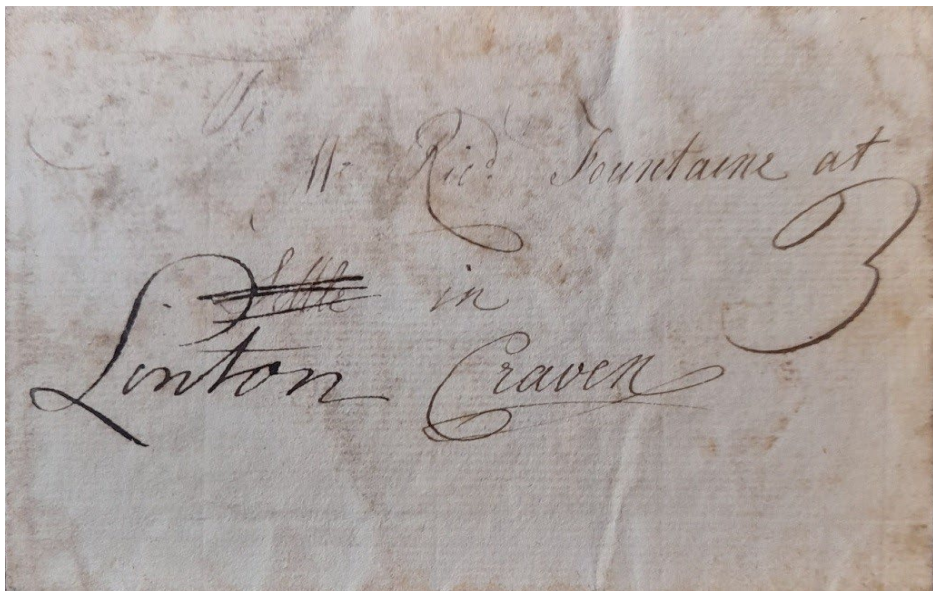 Mr Ricd. Fountaine at
3
Settle in
Linton Craven